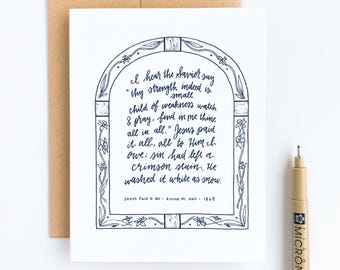 I hear the Savior say
"thy strength indeed is
small
child of weakness watch
& pray. find in me thine
all in all." Jesus paid
it all, all to Him I
owe; sin had left a
crimson stain, He
washed it white as snow.
JESUS PAID IT ALL • ELVINA M. HALL • 1865
MICRON